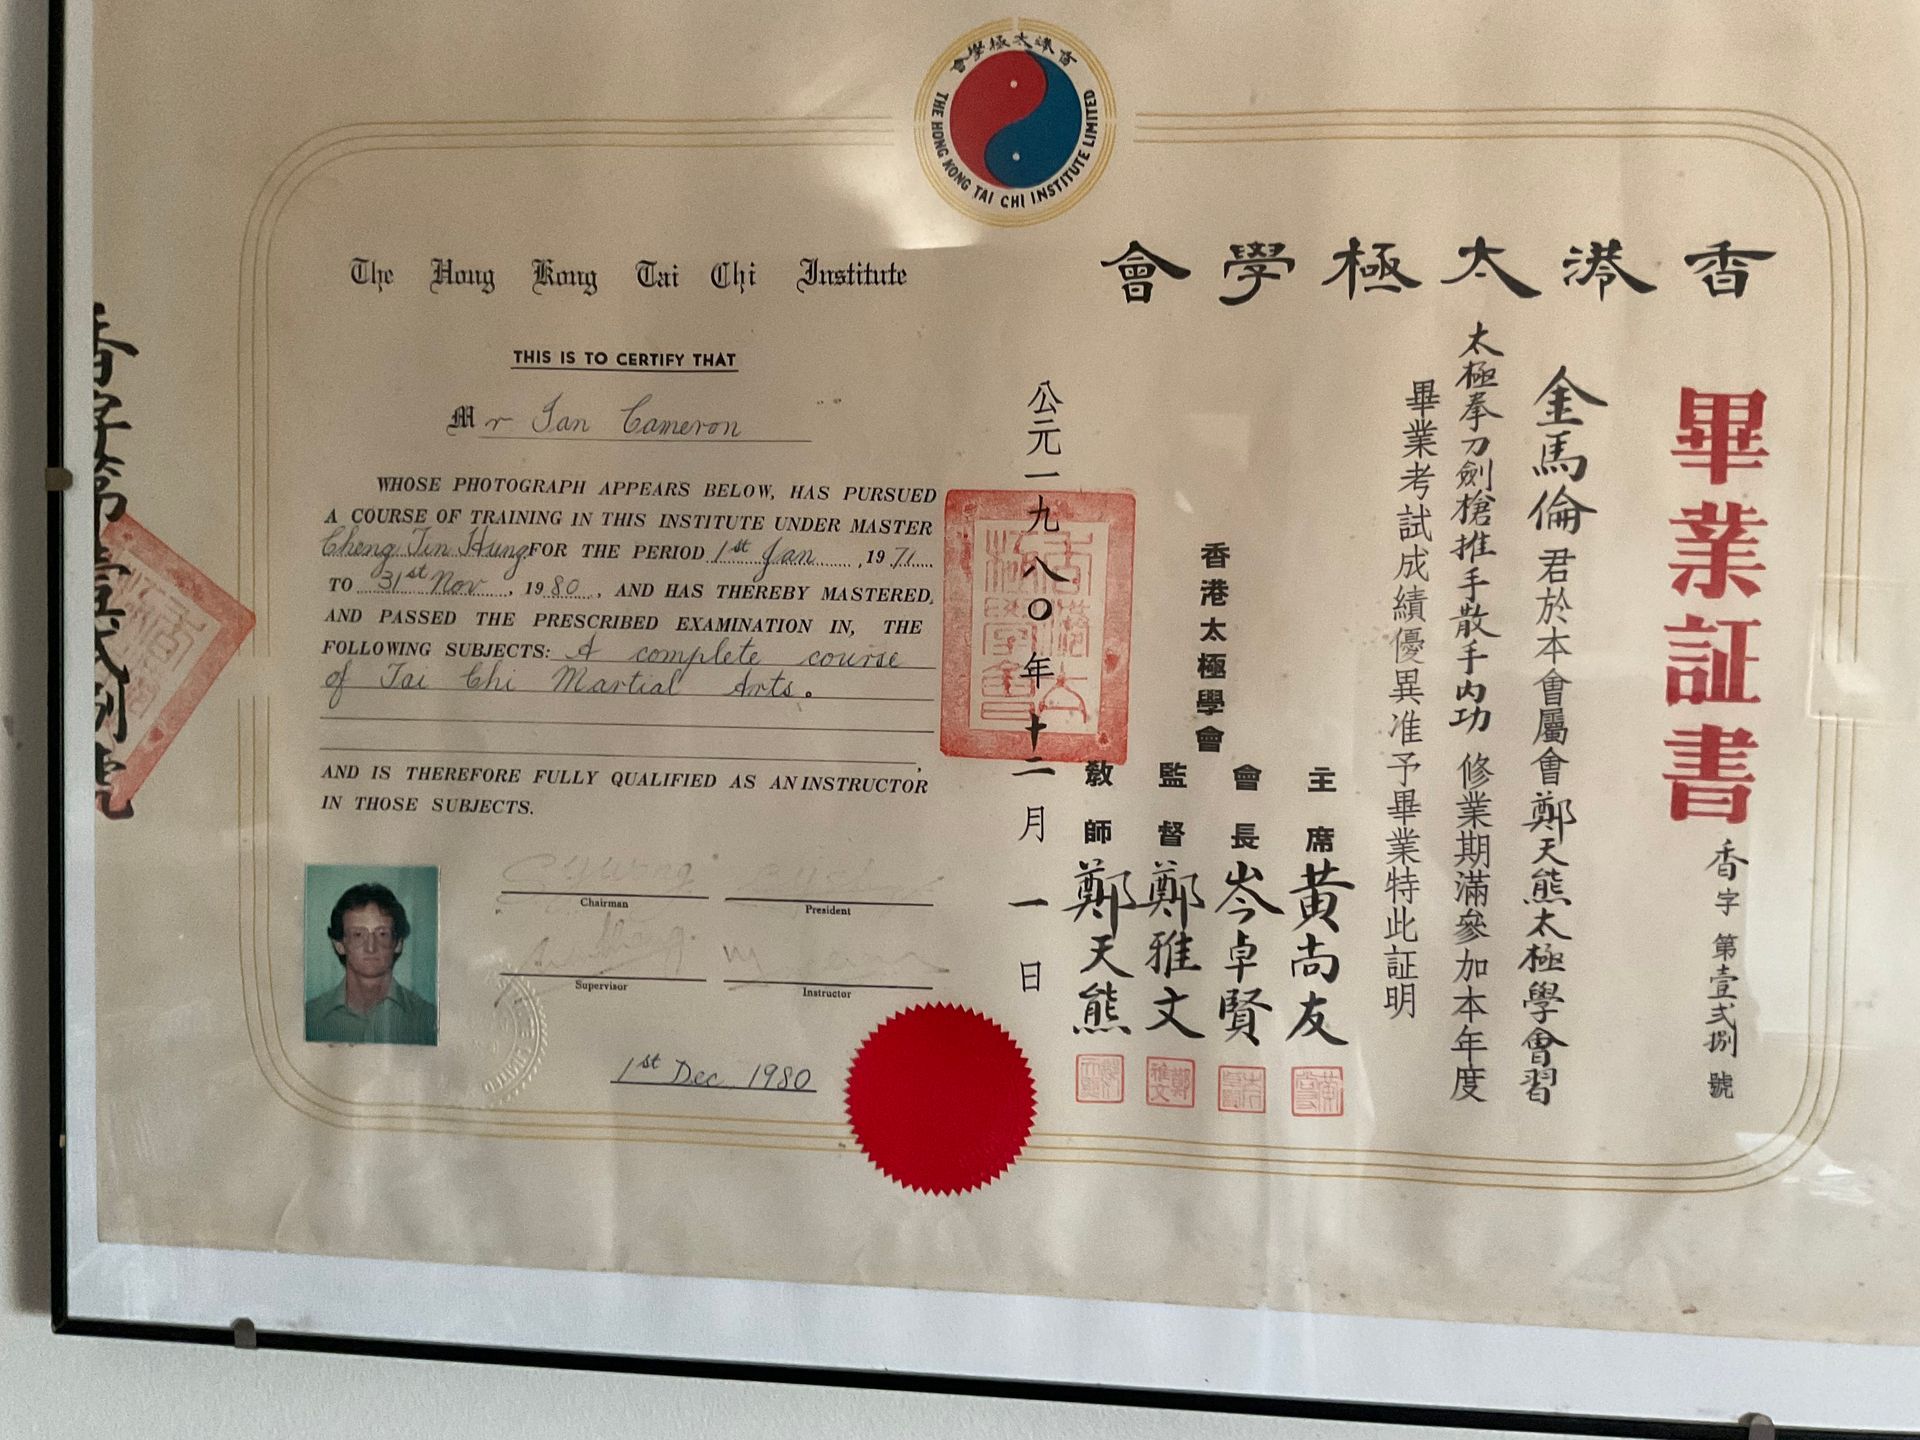 香港太極學會
THE HONG KONG TAI CHI INSTITUTE LIMITED
The Hong Kong Tai Chi Institute
THIS IS TO CERTIFY THAT
Mr Ian Cameron
WHOSE PHOTOGRAPH APPEARS BELOW, HAS PURSUED
A COURSE OF TRAINING IN THIS INSTITUTE UNDER MASTER
Cheng Tin Hung FOR THE PERIOD 1st Jan, 1971
TO 31st Nov, 1980, AND HAS THEREBY MASTERED,
AND PASSED THE PRESCRIBED EXAMINATION IN, THE
FOLLOWING SUBJECTS: A complete course
of Tai Chi Martial Arts.
AND IS THEREFORE FULLY QUALIFIED AS AN INSTRUCTOR
IN THOSE SUBJECTS.
Chairman
President
Supervisor
Instructor
1st Dec 1980
香港太極學會
畢業証書
香字第壹弍捌號
金馬倫君於本會屬會鄭天熊太極學會習
太極拳刀劍槍推手散手內功修業期滿參加本年度
畢業考試成績優異准予畢業特此証明
香港太極學會
主席黃尚友
會長岑卓賢
監督鄭雅文
教師鄭天熊
公元一九八〇年十二月一日
香字第壹弍捌號